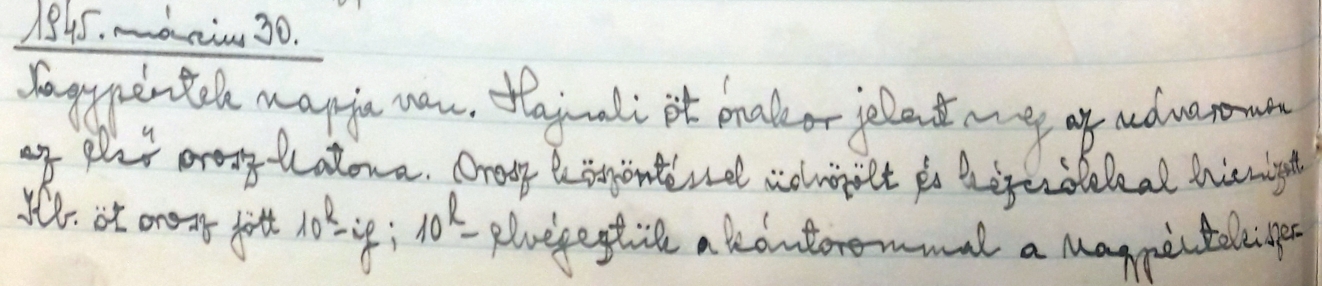 1945. március 30.
Nagypéntek napja van. Hajnali öt órakor jelent meg az udvaromon
az első orosz katona. Orosz köszöntéssel üdvözölt és kézcsókkal
Kb. öt orosz jött 10h-ig; 10h- elvégeztük a kántorommal a nagypénteki szer-